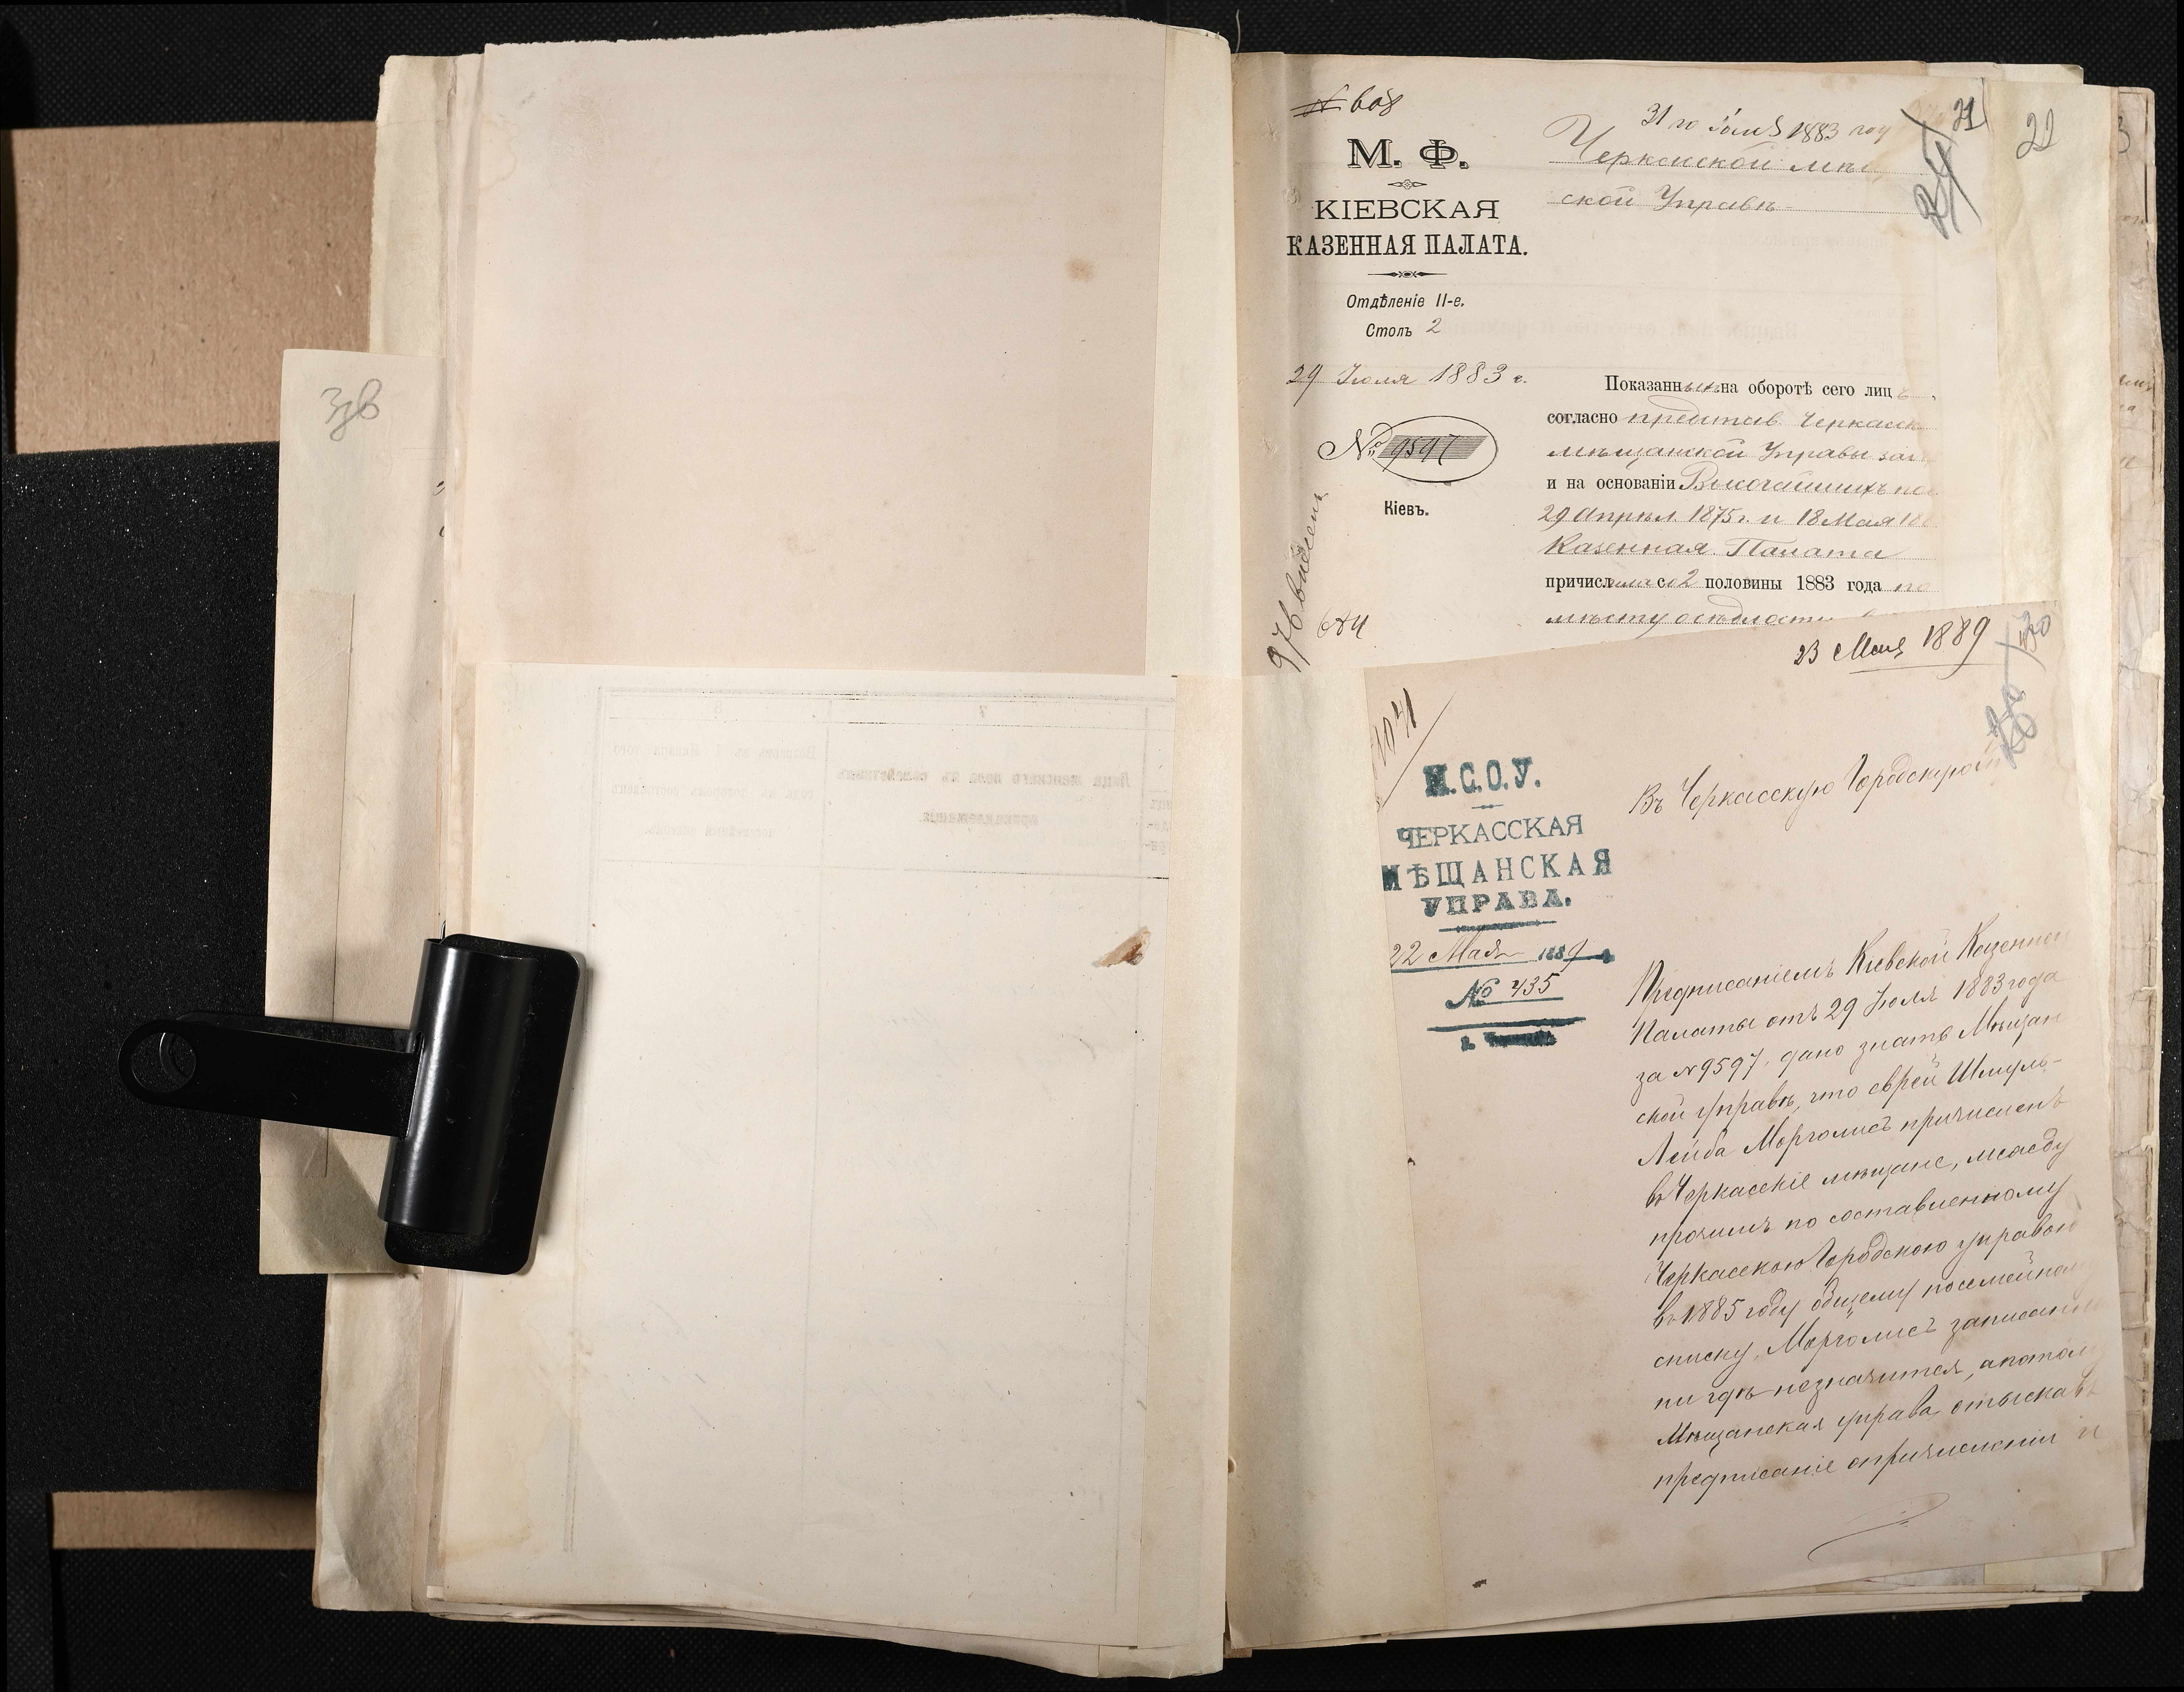 31 го Іюля 1883 году
21
22
24
№ 608
М. Ф.
КІЕВСКАЯ
КАЗЕННАЯ ПАЛАТА.
Отдѣленіе II-е.
Столъ 2
29 Іюля 1883 г.
№ 9597
Кіевъ.
Черкасской мѣщ
ской Управѣ
Показанныхъ на оборотѣ сего лицъ,
согласно представ. Черкасск
мѣщанской Управы
и на основаніи Высочайшихъ
29 Апрѣл. 1875 г. и 18 Мая 18
Казенная Палата
причислила со 2 половины 1883 года по
мѣсту осѣдлости
23 Мая 1889
30
М.С.О.У.
ЧЕРКАССКАЯ
МѢЩАНСКАЯ
УПРАВА.
22 Мая 1889
№ 435
Въ Черкасскую Городскую
Предписаніемъ Кіевской Казенной
Палаты отъ 29 Іюля 1883 года
за № 9597, дано знать Мѣщан
ской управѣ, что еврей Шмуль-
Лейба Морголисъ причисленъ
въ Черкасскіе мѣщане, между
прочимъ по составленному
Черкасскою Городскою управою
въ 1885 году общему посемейному
списку Морголисъ записаннымъ
нигдѣ незначится, апотому
Мѣщанская управа, отыскавъ
предписаніе опричисленіи и